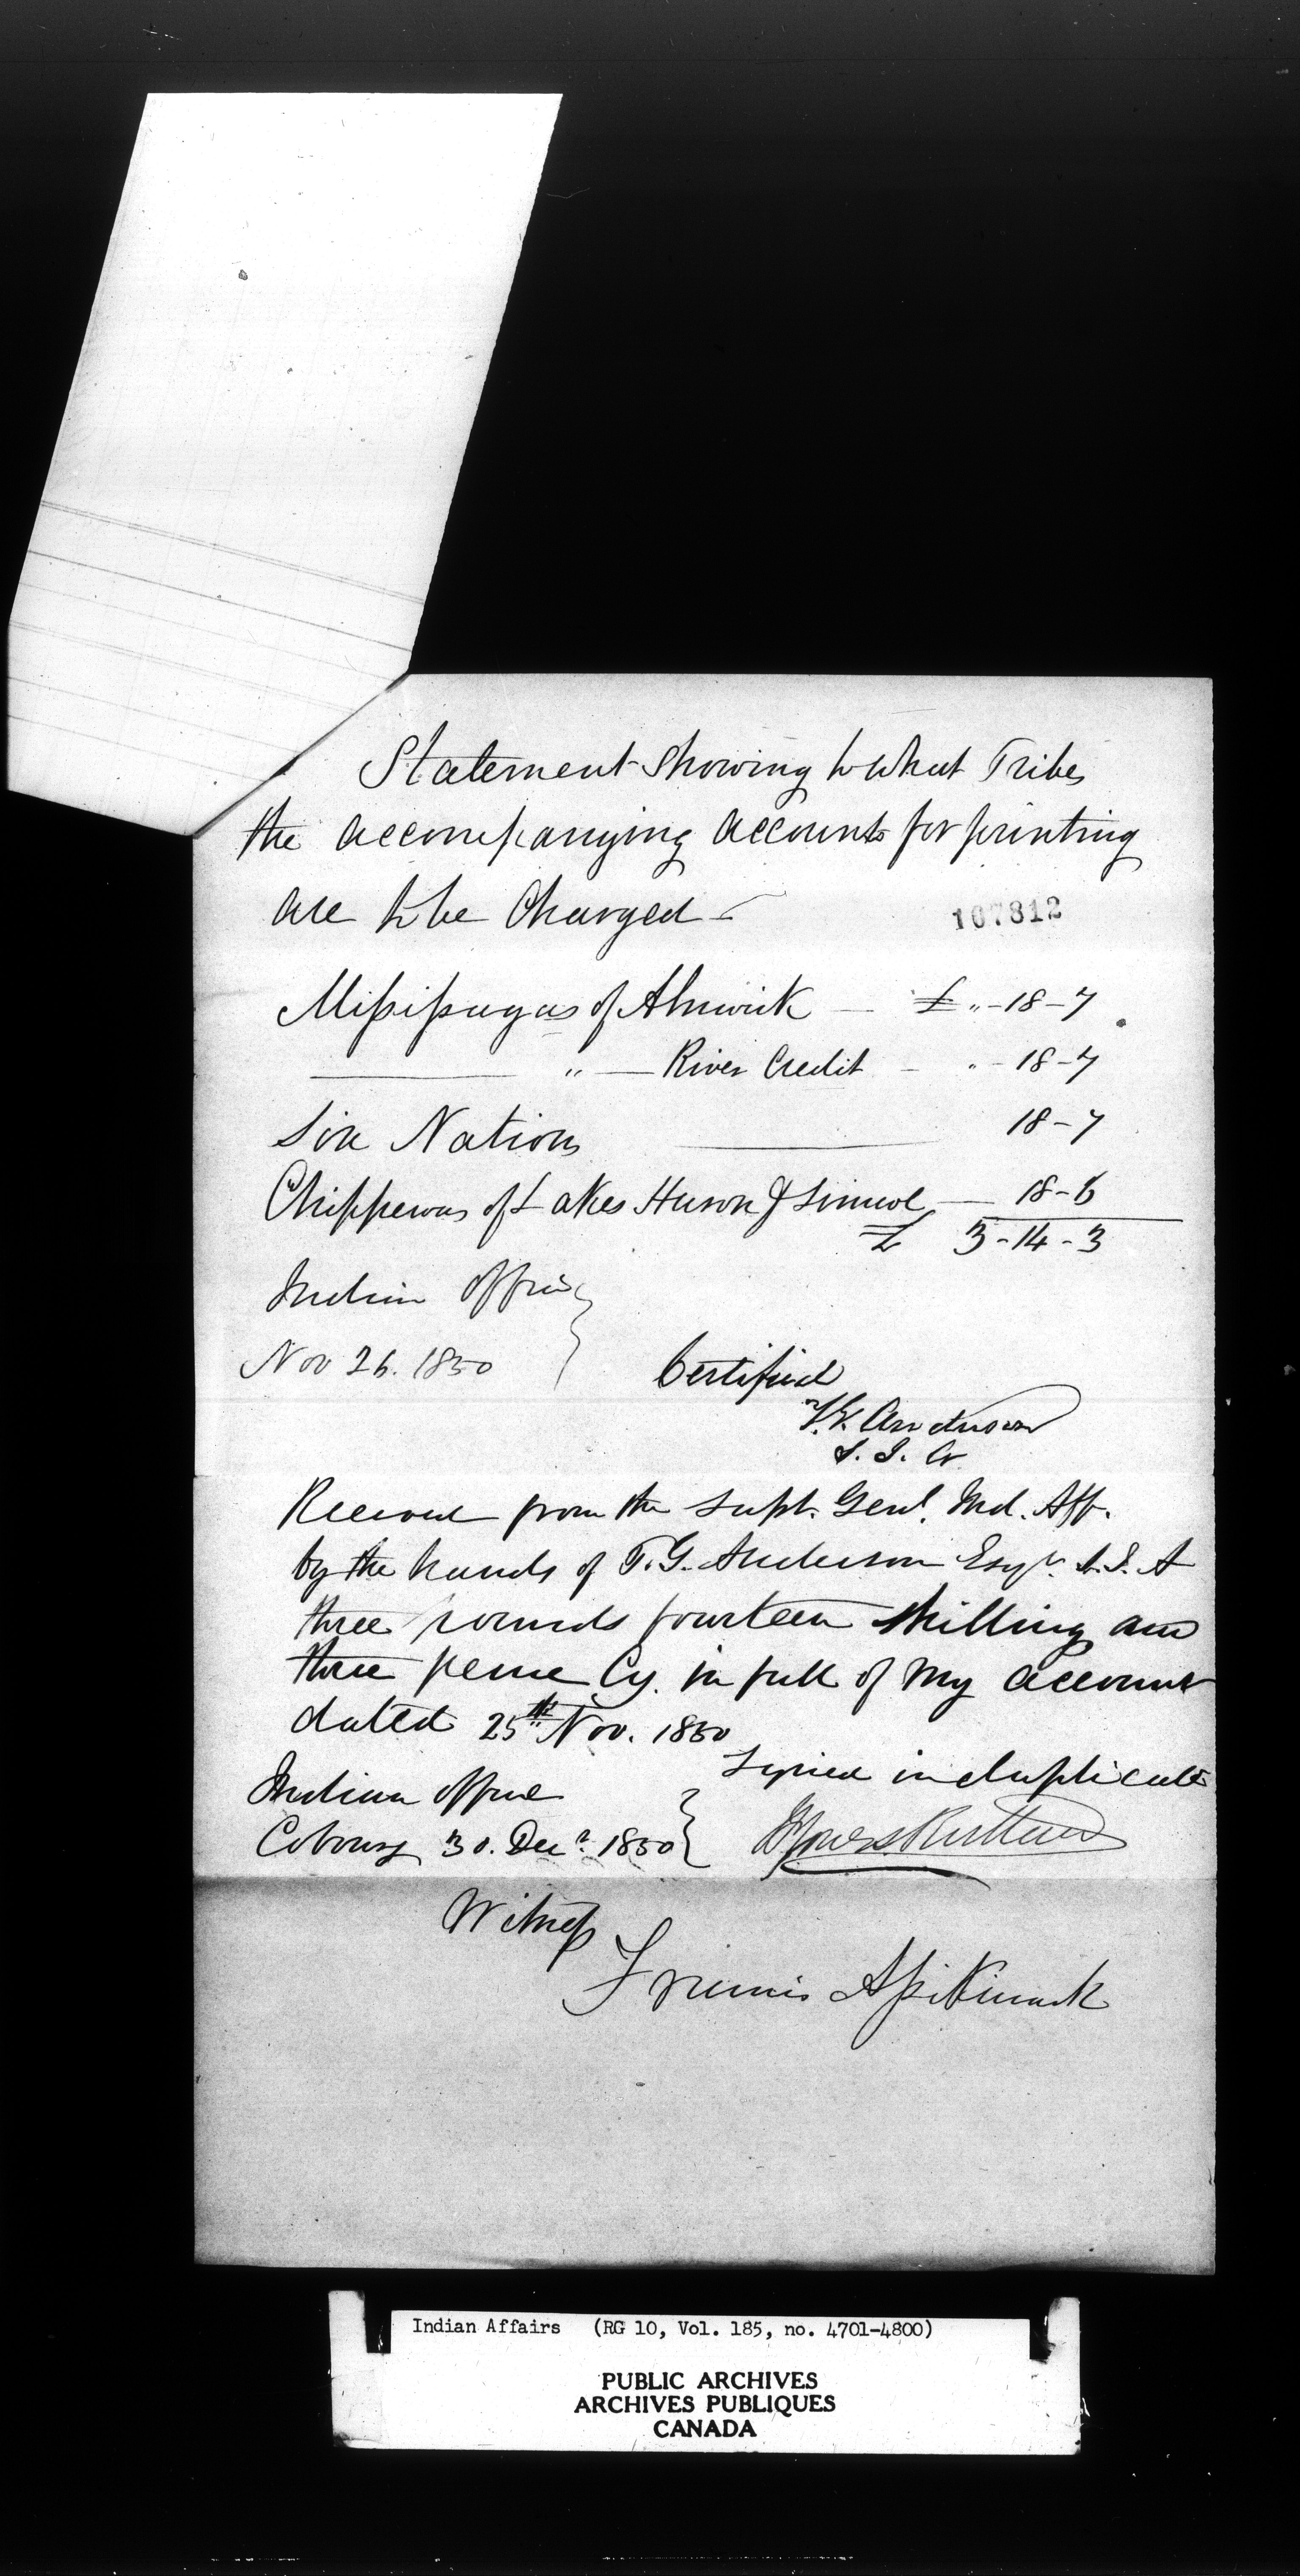 Statement Showing to What Tribes
the accompanying accounts for printing
are to be Charged —
107812
Missisaugas of Alnwick — £ „ - 18 - 7
——— „ — River Credit - „ - 18 - 7
Six Nations ——— 18 - 7
Chippewas of Lakes Huron & Simcoe — 18 - 6
£ 3 - 14 - 3
Indian Office
Nov 26. 1850
Certified
T.G. Anderson
S. I. A
Received from the Supt. Genl. Ind. Aff.
by the hands of T.G. Anderson Esqr. S.I. A
three pounds fourteen shilling and
three pence Cy. in full of my account
dated 25th Nov. 1850
Signed in duplicate
Indian Office
Cobourg 30. Decr. 1850
Ruttan
Witness
Francis Assikinack
Indian Affairs (RG 10, Vol. 185, no. 4701-4800)
PUBLIC ARCHIVES
ARCHIVES PUBLIQUES
CANADA